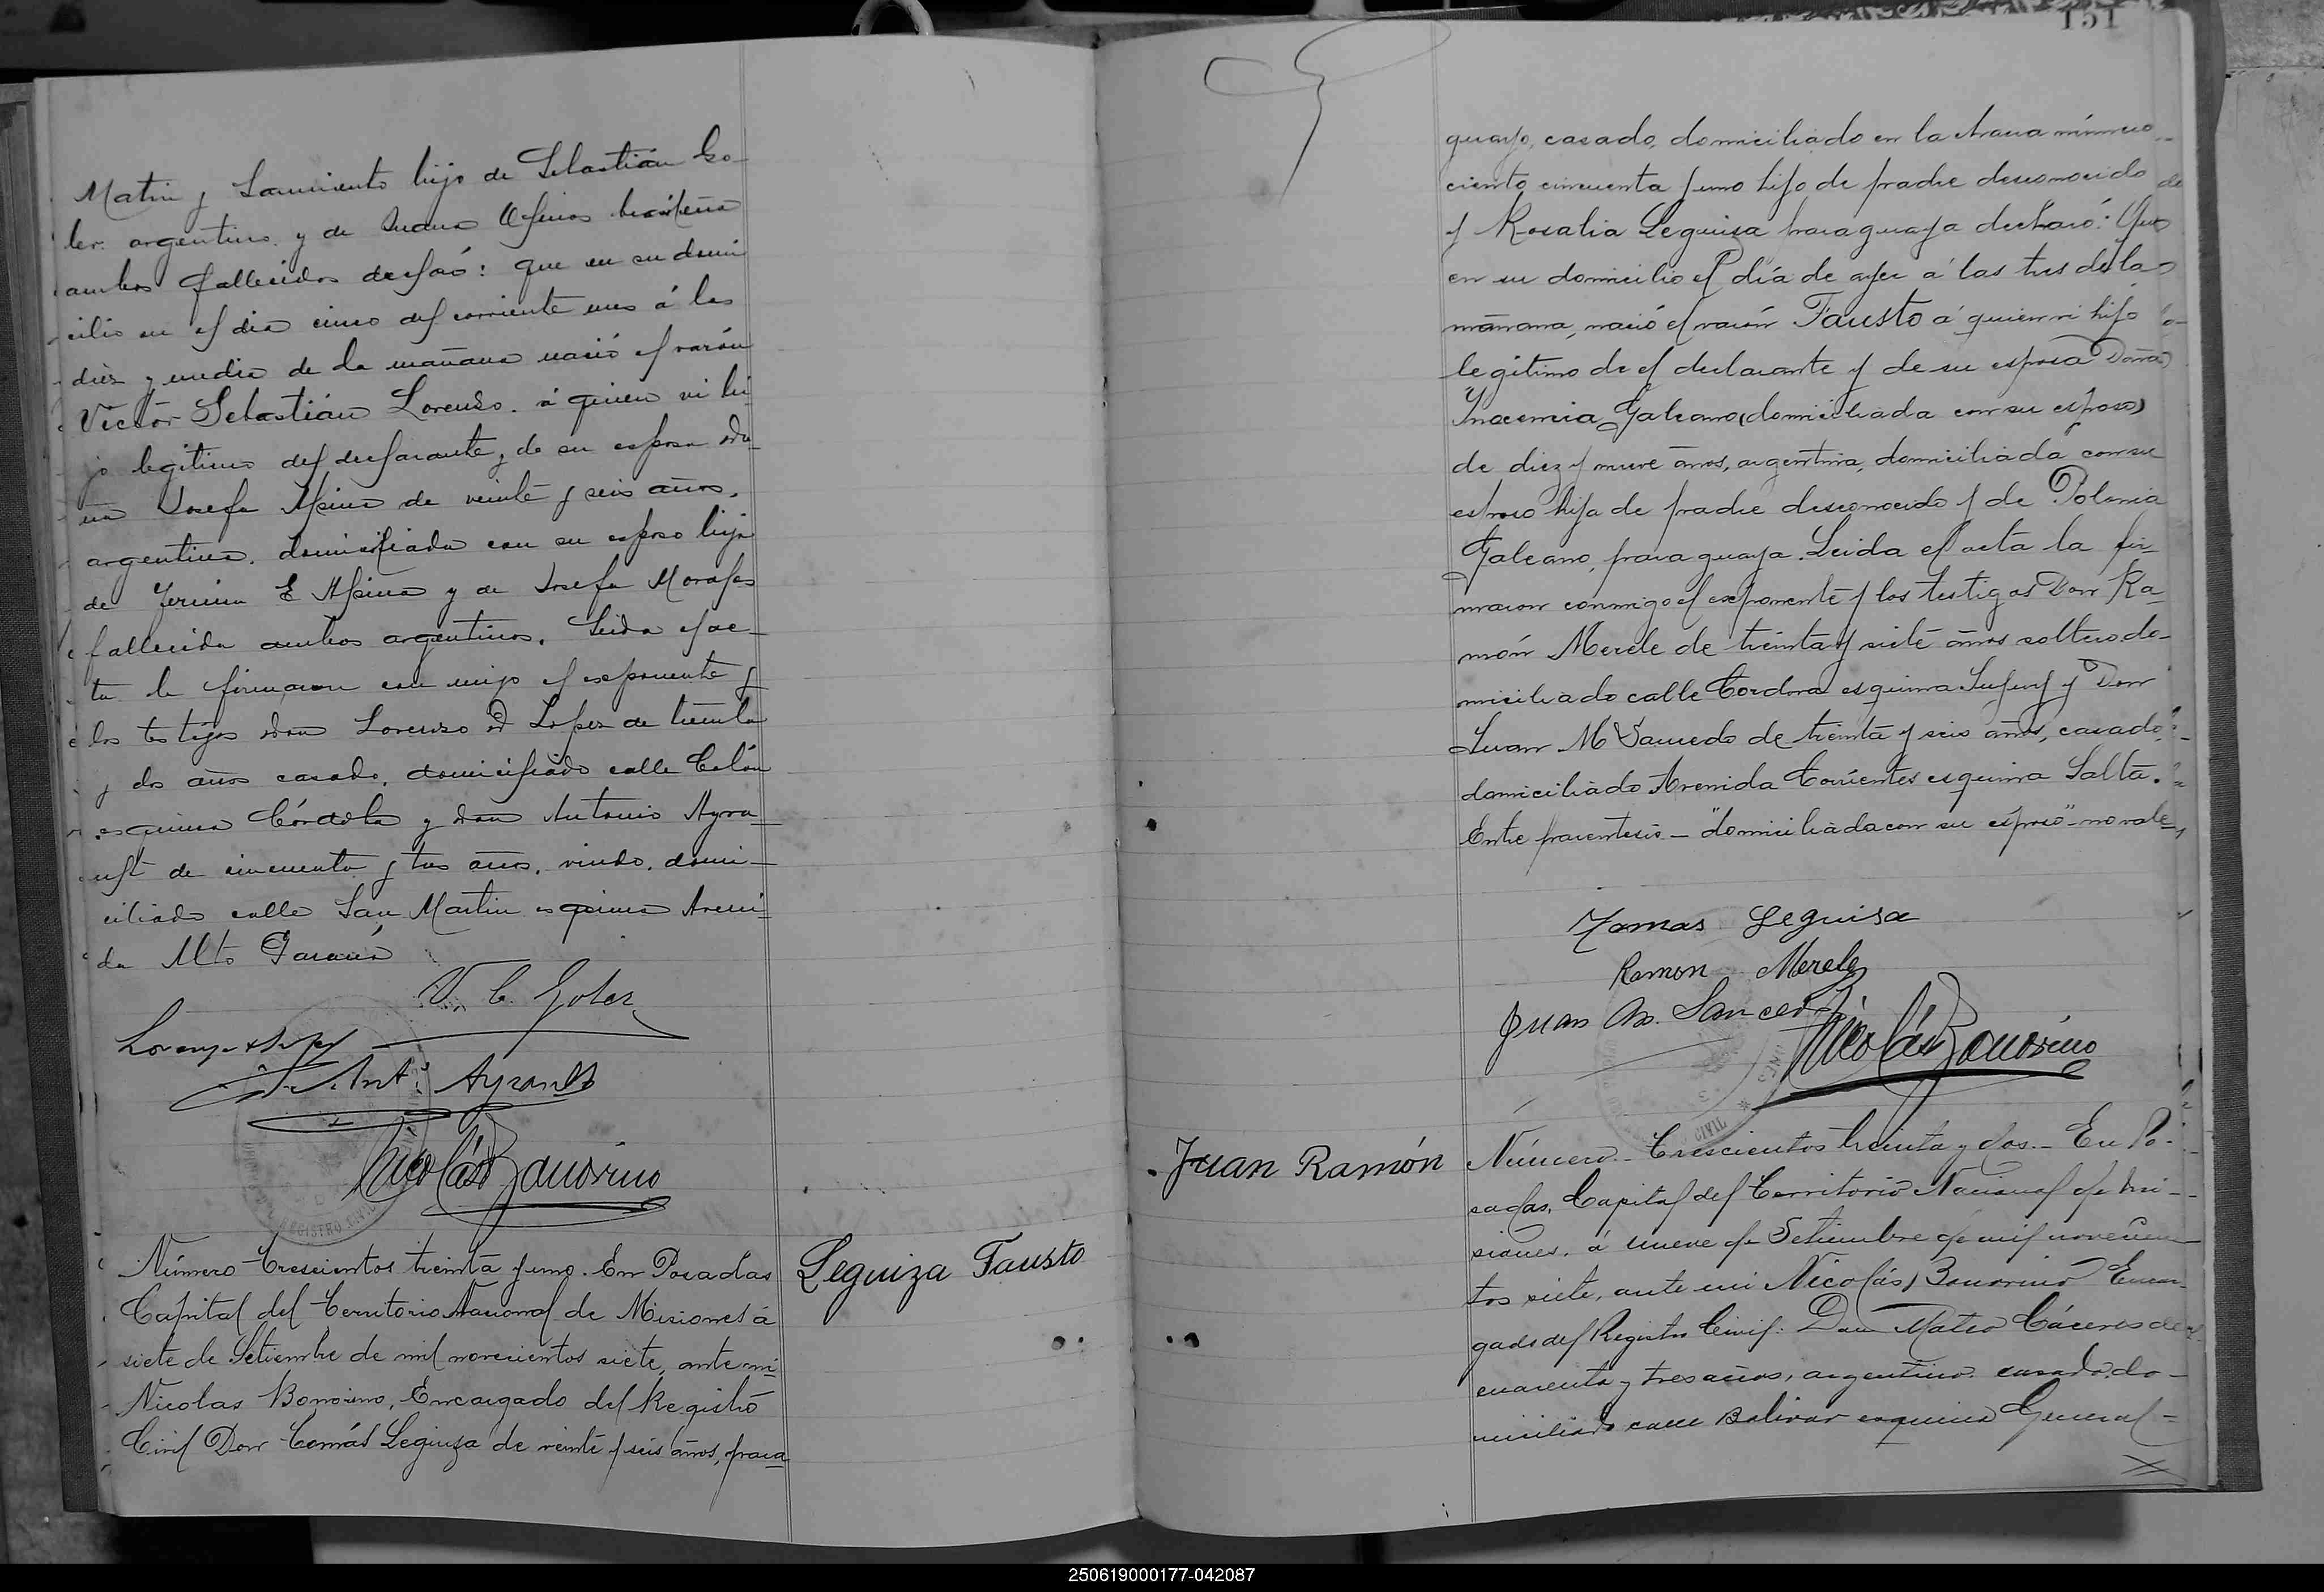 Matin y Sarmiento hijo de Sebastián Go-
ler argentino y de Juana brasileña
ambos fallecidos declaró: que en su domi
cilio en el dia cinco del corriente mes á las
diez y media de la mañana nació el varón
Víctor Sebastián Lorenzo. á quien vi hi-
jo legitimo del declarante y de su esposa do-
ña Josefa Alsina de veinte y seis años,
argentina. domiciliada con su esposo hija
de Fermin E Alsina y de Josefa Morales
fallecida ambos argentinos. Leida el ac-
ta la firmaron con migo el exponente y
los testigos don Lorenzo D Lopez de treinta
y dos años casado. domiciliado calle Colón
esquina Córdoba y don Antonio Ayra-
ult de cincuenta y tres años. viudo. domi-
ciliado calle San Martin esquina Aveni-
da Alto Paraná
V. C. Goler
Lorenzo D Lopez
Ant. Ayrault
Nicolás Bonorino
REGISTRO CIVIL
Número Trescientos treinta y uno. En Posadas
Capital del Territorio Nacional de Misiones á
siete de Setiembre de mil novecientos siete, ante mi
Nicolas Bonorino, Encargado del Registro
Civil Don Tomás Leguiza de veinte y seis años, para
Leguiza Fausto
151
guayo, casado, domiciliado en la chacra número
ciento cincuenta y uno hijo de padre desconocido
y Rosalia Leguiza paraguaya declaró: Que
en su domicilio el día de ayer á las tres de la
mañana, nació el varón Fausto á quien vi hijo
legítimo de el declarante y de su esposa Doña
Inocencia Galeano (domiciliada con su esposo)
de diez y nueve años, argentina, domiciliada con su
esposo hija de padre desconocido y de Polonia
Galeano, paraguaya. Leida el acta la fir-
maron conmigo el exponente y los testigos Don Ra-
món Merele de treinta y siete años soltero do-
miciliado calle Cordova esquina Jujuy y Don
Juan M Saucedo de treinta y seis años, casado,
domiciliado Avenida Corrientes esquina Salta.
Entre parentesis – "domiciliada con su esposo" – no vale
Tomas Leguisa
Ramon Merele
Juan M. Saucedo
Nicolás Bonorino
CIVIL
Juan Ramón
Número – Trescientos treinta y dos – En Po-
sadas, Capital del Territorio Nacional de Mi-
siones, á nueve de Setiembre de mil novecien-
tos siete, ante mi Nicolás Bonorino Encar-
gado del Registro Civil: Don Mateo Cáceres de
cuarenta y tres años, argentino. casado. do-
miciliado calle Bolivar esquina General
250619000177-042087